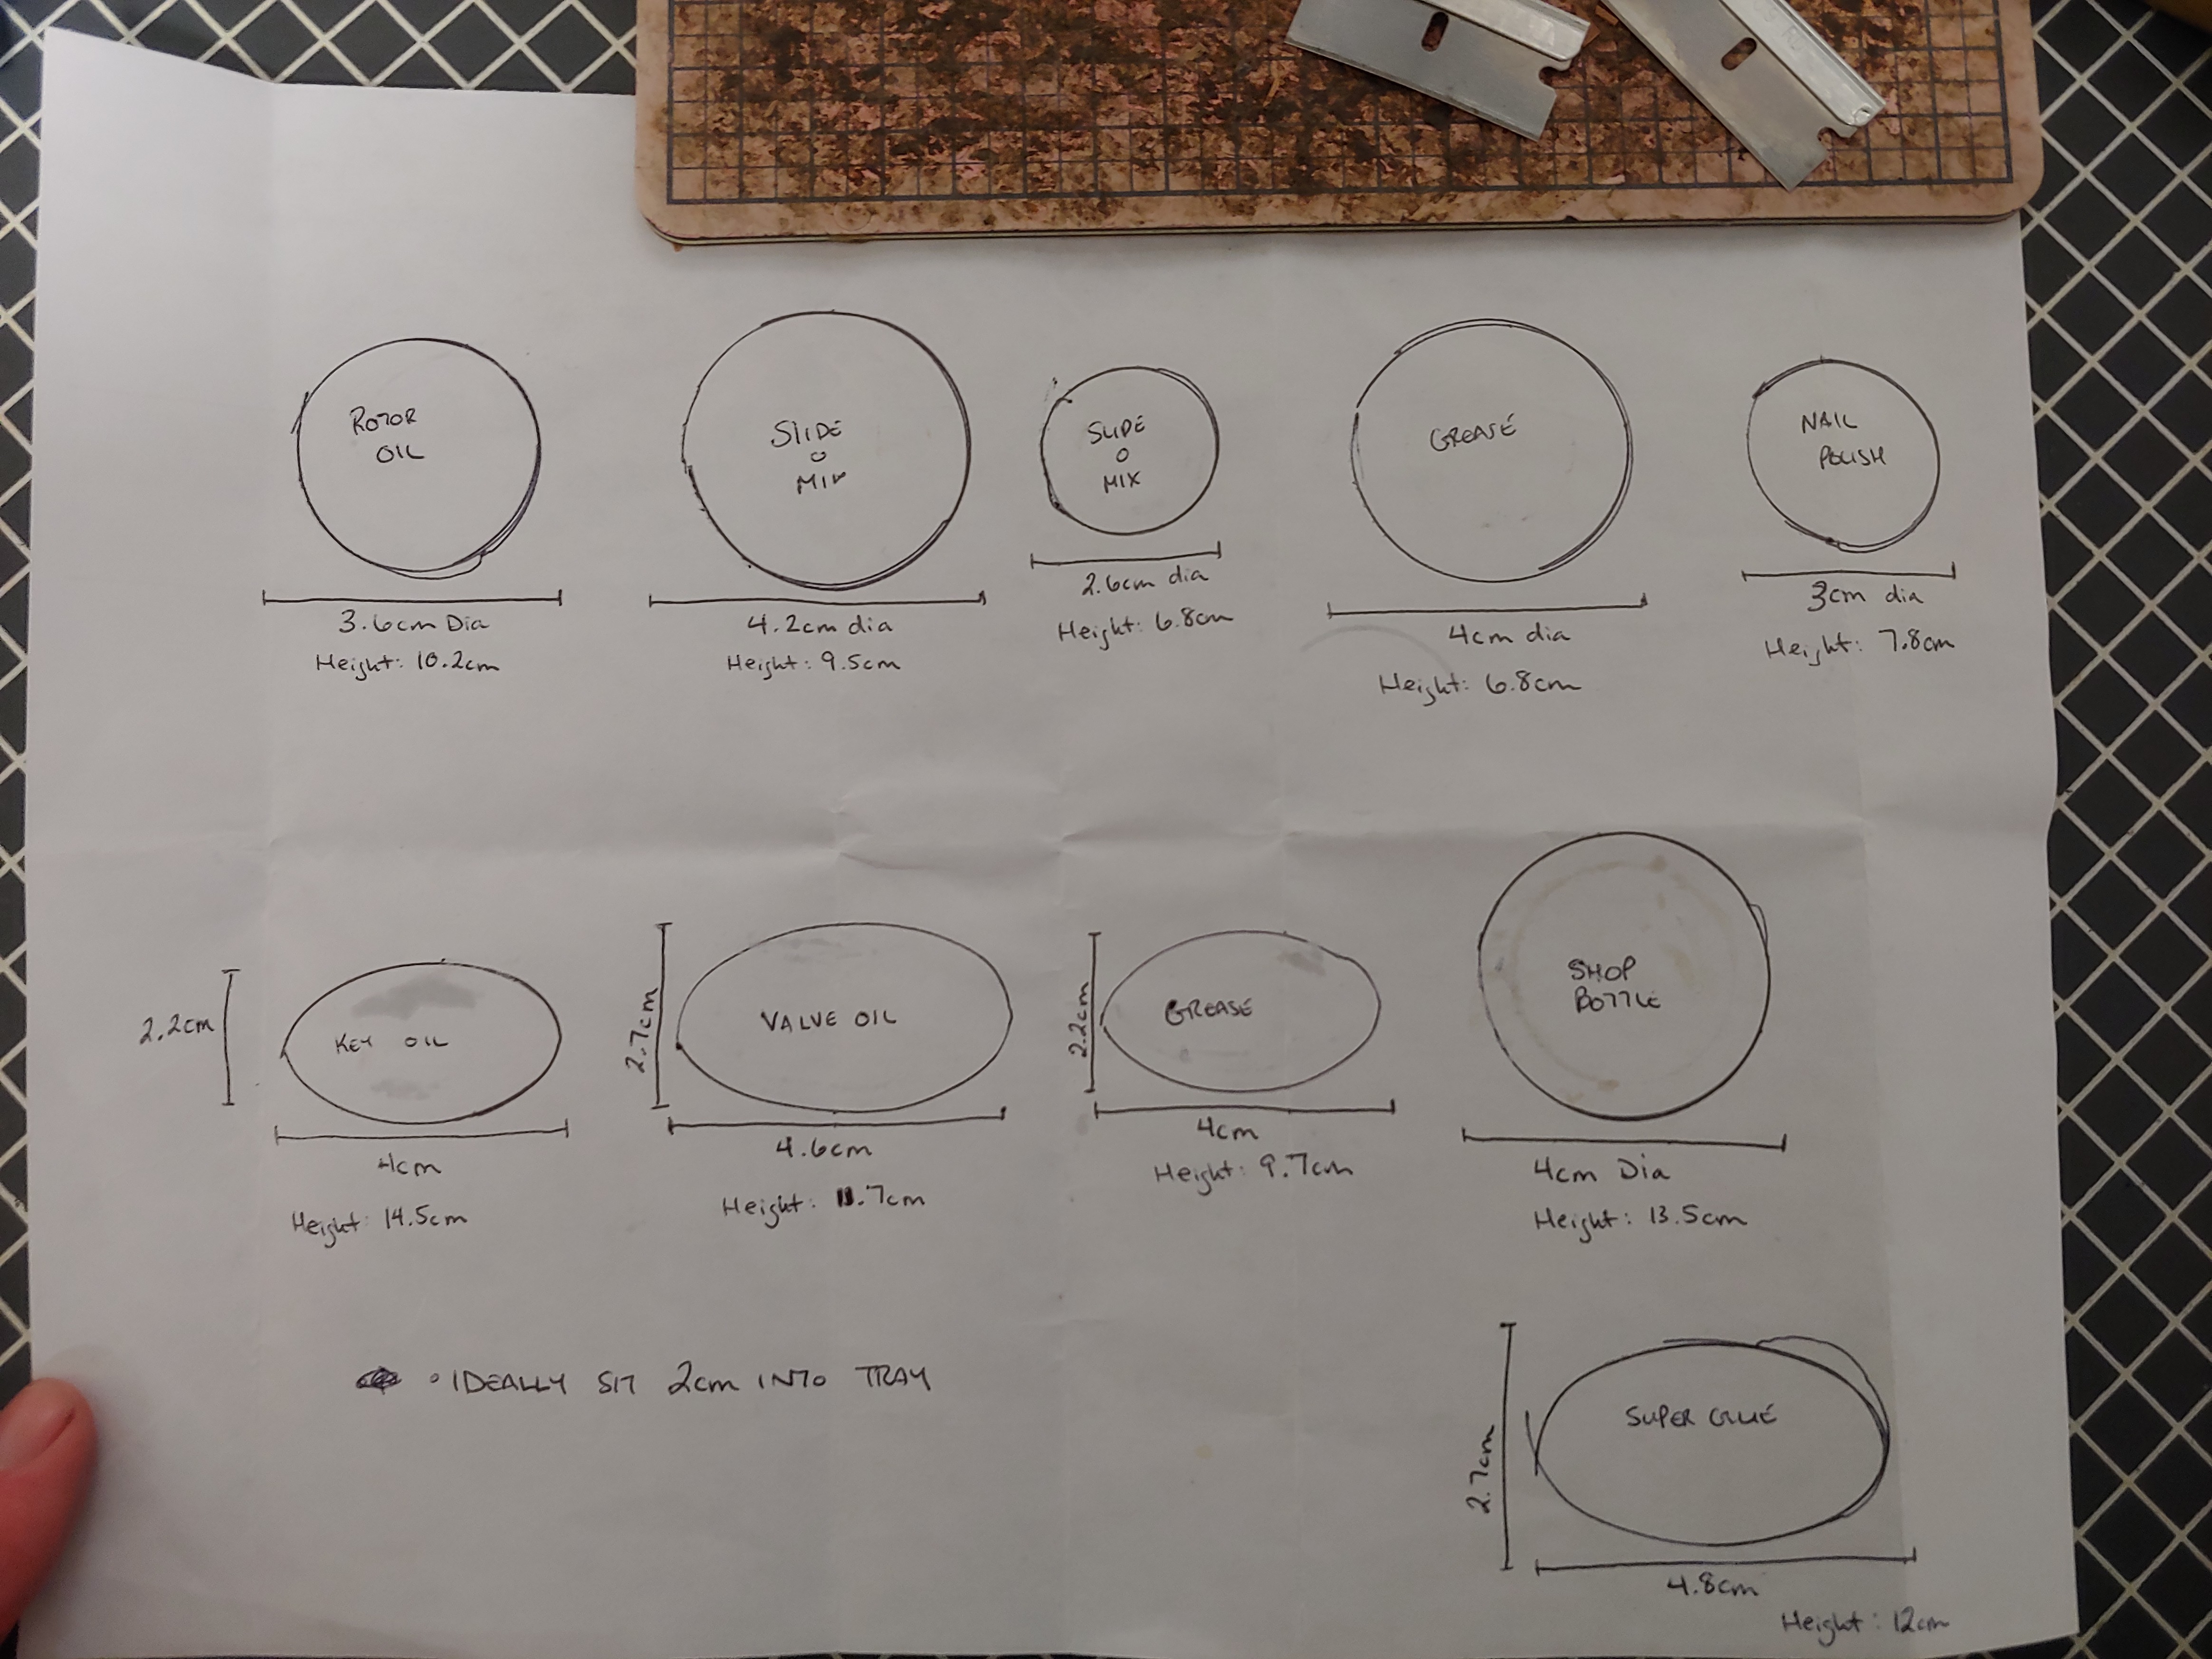 ROTOR
OIL
3.6cm Dia
Height: 10.2cm
SLIDE
O
MIX
4.2cm dia
Height: 9.5cm
SLIDE
O
MIX
2.6cm dia
Height: 6.8cm
GREASE
4cm dia
Height: 6.8cm
NAIL
POLISH
3cm dia
Height: 7.8cm
2.2cm
KEY OIL
4cm
Height: 14.5cm
2.7cm
VALVE OIL
4.6cm
Height: 11.7cm
2.2cm
GREASE
4cm
Height: 9.7cm
SHOP
BOTTLE
4cm Dia
Height: 13.5cm
• IDEALLY SIT 2cm INTO TRAY
2.7cm
SUPER GLUE
4.8cm
Height: 12cm